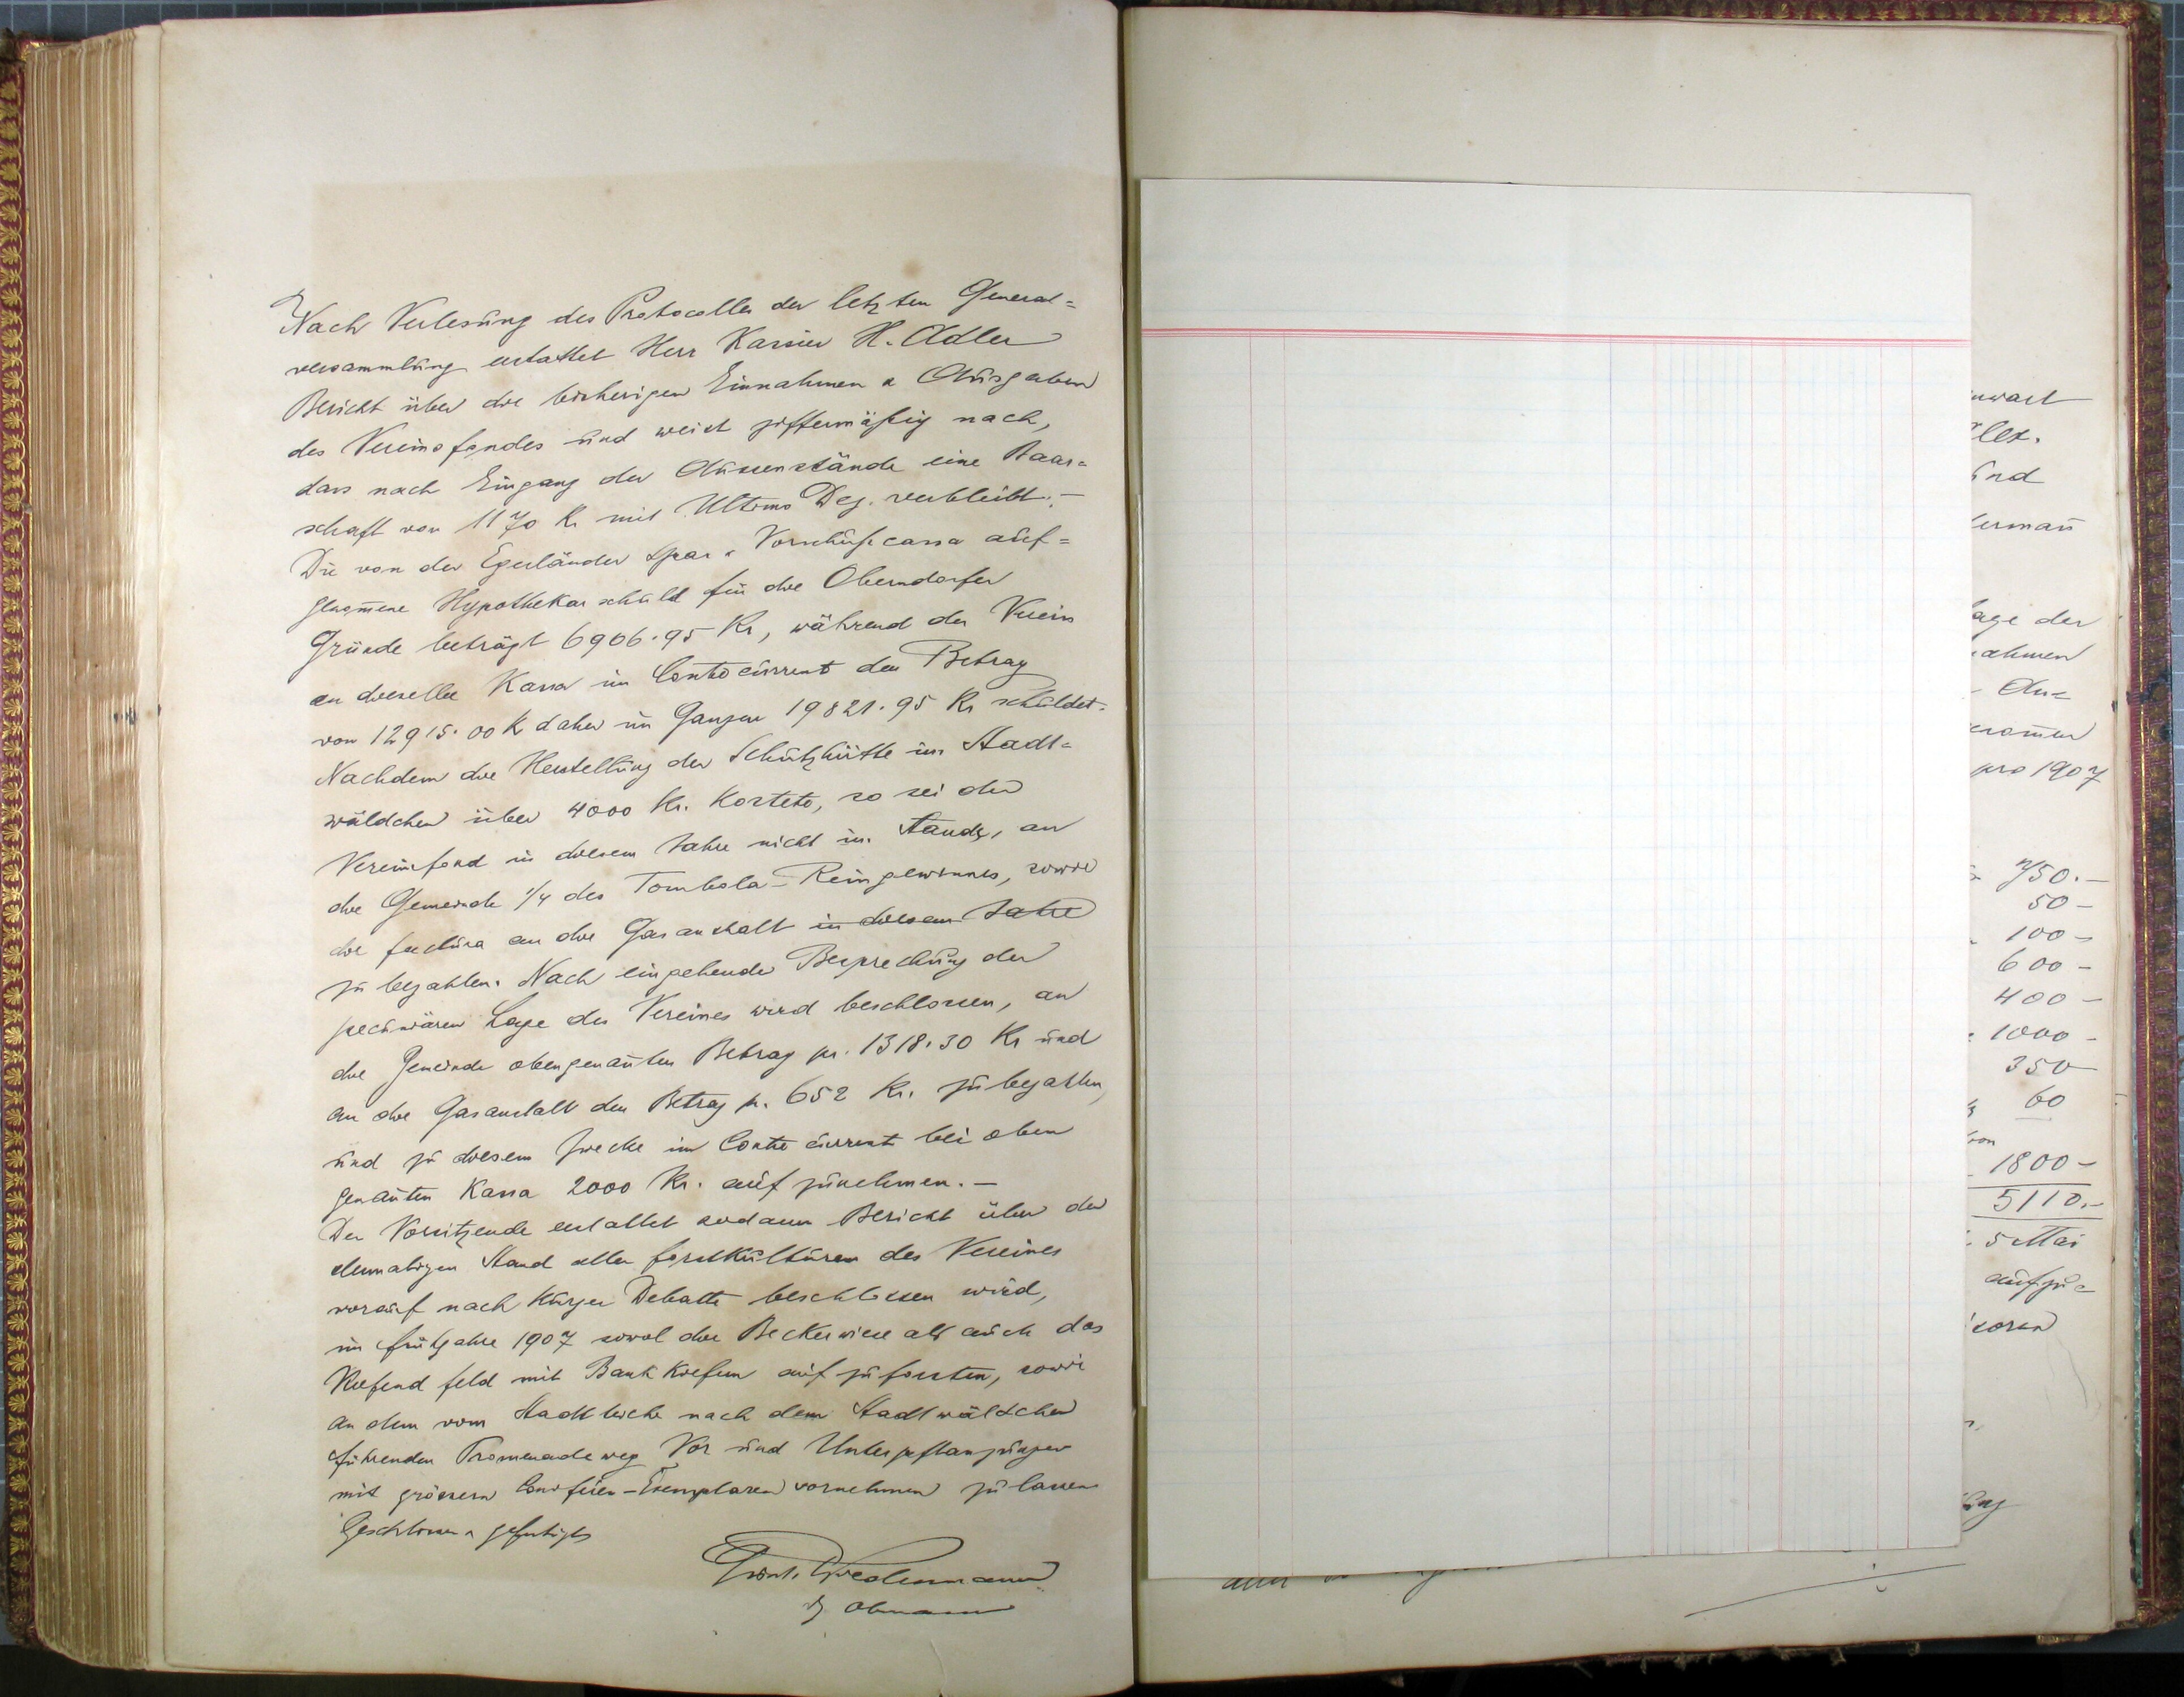 Nach Verlesung des Protocolles der letzten General=
versammlung erstattet Herr Kassier H. Adler
Bericht über die bisherigen Einnahmen & Ausgaben
des Vereinsfondes und weist ziffermäßig nach,
dass nach Eingang der Aussenstände eine Baar=
schaft von 1170 Kr mit Ultimo Dez. verbleibt. –
Die von der Egerländer Spar & Vorschußcassa auf=
genom̄ene Hypothekarschuld für die Oberndorfer
Gründe beträgt 6906.95 Kr, während der Verein
an dieselbe Kassa im Contocurrent den Betrag
von 12915.00 K daher im Ganzen 19821.95 Kr schuldet.
Nachdem die Herstellung der Schutzhütte im Stadt=
wäldchen über 4000 Kr. kostete, so sei der
Vereinsfond in diesem Jahre nicht im Stande, an
die Gemeinde 1/4 des Tombola-Reingewinnes, sowie
die factura an die Gasanstalt in diesem Jahre
zu bezahlen. Nach eingehender Besprechung der
pecuniären Lage des Vereines wird beschlossen, an
die Gemeinde obengenan̄ten Betrag pr. 1318.30 Kr und
an die Gasanstalt den Betrag pr. 652 Kr. zu bezahlen,
und zu diesem Zwecke im Conto current bei oben
genan̄ten Kassa 2000 Kr. aufzunehmen. –
Der Vorsitzende erstattet sodann Bericht über den
dermaligen Stand aller Forstkulturen des Vereines
worauf nach kurzer Debatte beschlossen wird,
im Frühjahre 1907 sowol die Beckerwiese als auch das
feld mit Bankkiefern aufzuforsten, sowie
an dem vom Stadtteiche nach dem Stadtwäldchen
führenden Promenadeweg Vor und Unterpflanzungen
mit grössern Coniferen-Exemplaren vornehmen zu lassen
Geschlossen & gefertigt
Wiedermann
Obmann
wart
und
erman̄
age der
ahmen
pro 1907
750.–
50 –
100 –
600 –
400 –
1000 –
350
60
von
1800 –
5110.–
5 Mai
aufzu=
soren
ung